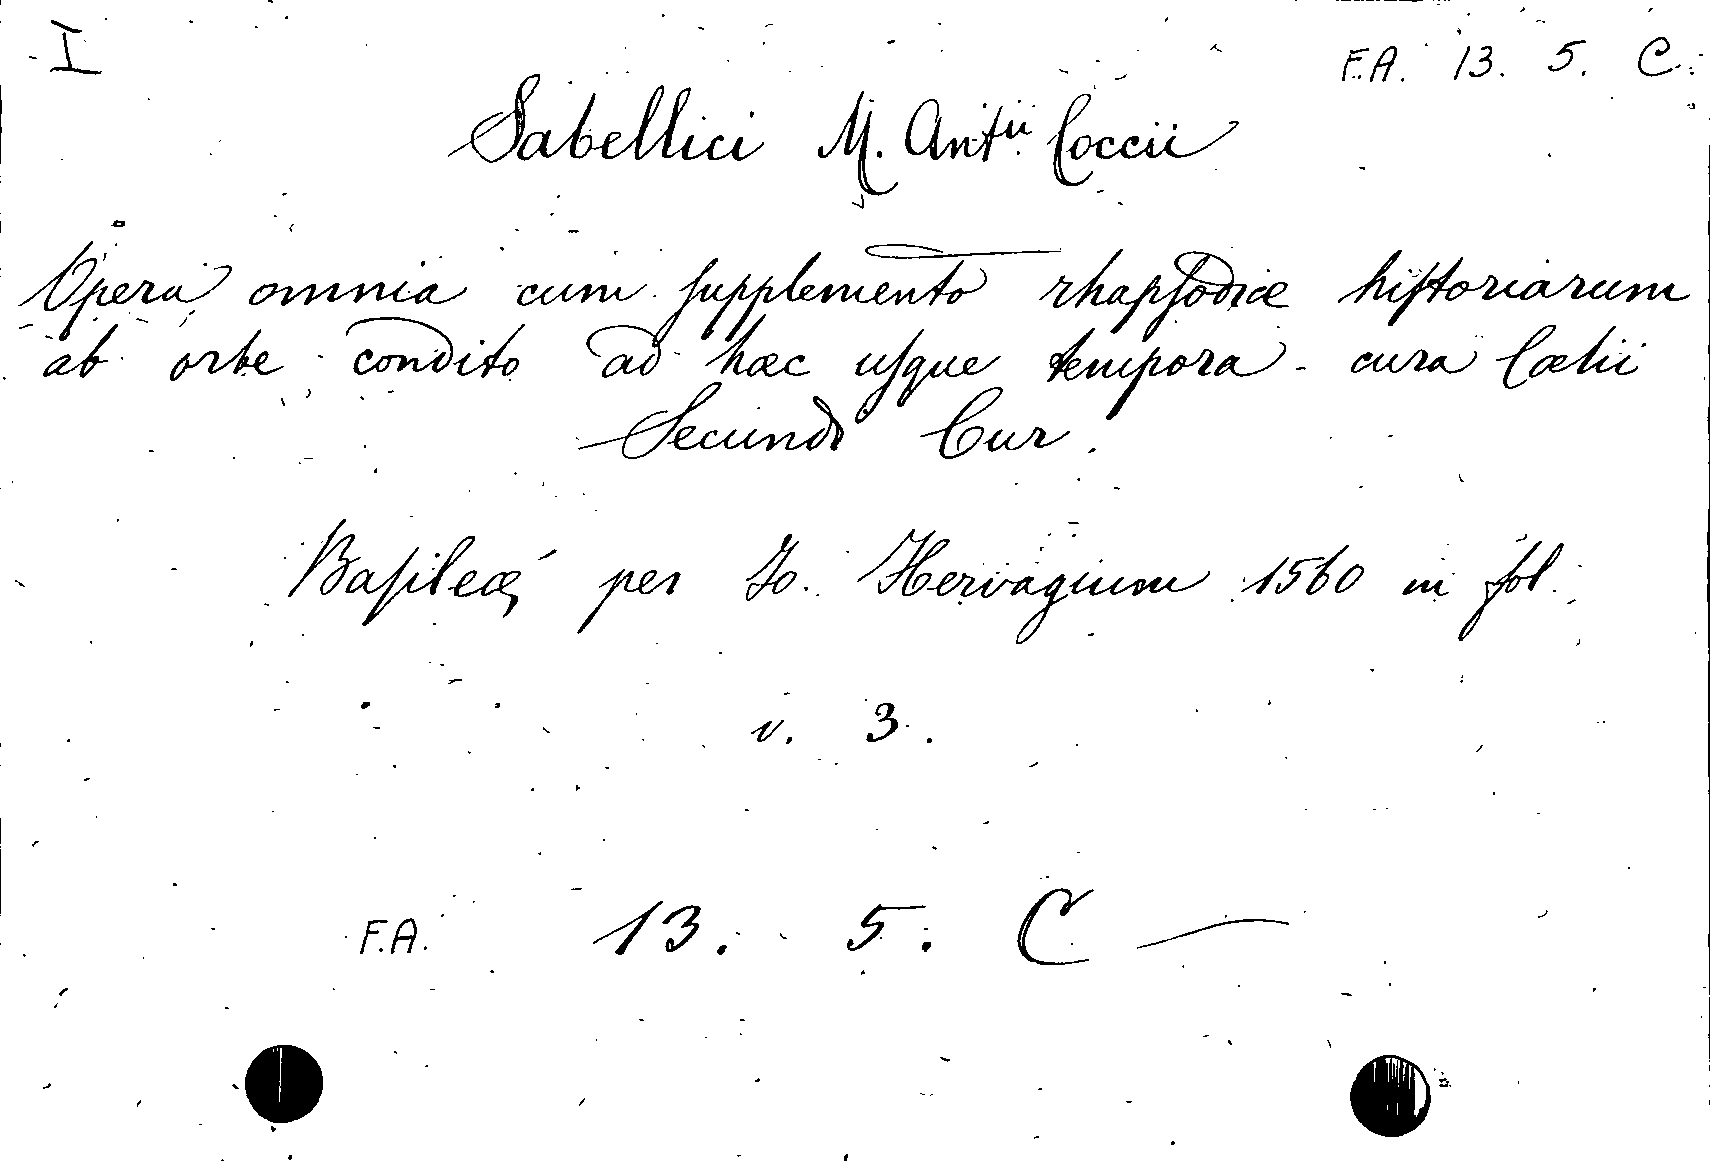 I
F.A. 13. 5. C.
Sabellici M. Antii. Coccii
Opera omnia cum supplemento rhapsodiæ historiarum
ab orbe condito ad hæc usque tempora - cura Cælii
Secundi Cur.
Basileæ, per Jo. Hervagium 1560 in fol.
v. 3.
F.A. 13. 5. C